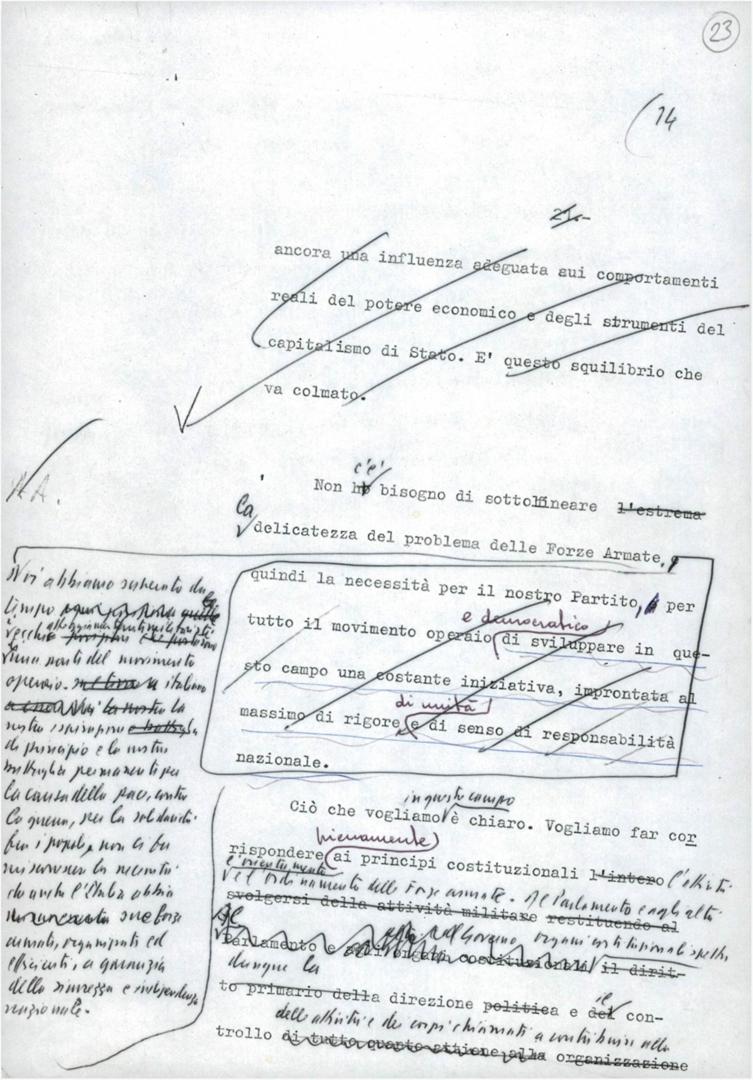 23
14
21.-
ancora una influenza adeguata sui comportamenti
reali del potere economico e degli strumenti del
capitalismo di Stato. E' questo squilibrio che
va colmato.
c'è
Non bisogno di sottolineare l'estrema
la
delicatezza del problema delle Forze Armate, e
quindi la necessità per il nostro Partito, per
e democratico
tutto il movimento operaio di sviluppare in que-
sto campo una costante iniziativa, improntata al
di unità
massimo di rigore e di senso di responsabilità
nazionale.
Noi abbiamo
tempo
vecchie
del movimento
operaio italiano
la
nostra
di principio e la nostra
battaglia permanente per
la causa della pace, contro
la guerra, per la solidarietà
fra i popoli, non ci ha
la necessità
che anche l'Italia abbia
sue forze
armate, organizzate ed
efficienti, a garanzia
della sicurezza e indipendenza
nazionale.
in questo campo
Ciò che vogliamo è chiaro. Vogliamo far cor
pienamente
rispondere ai principi costituzionali l'intero l'attività
e l'ordinamento delle Forze armate. Al Parlamento e agli altri
svolgersi della attività militare restituendo al
Governo, organi costituzionali spetta
Parlamento e costituzionali il dirit-
dunque la
to primario della direzione politica e del con-
dell'attività e dei corpi chiamati a contribuire alla
trollo di tutto quanto attiene alla organizzazione